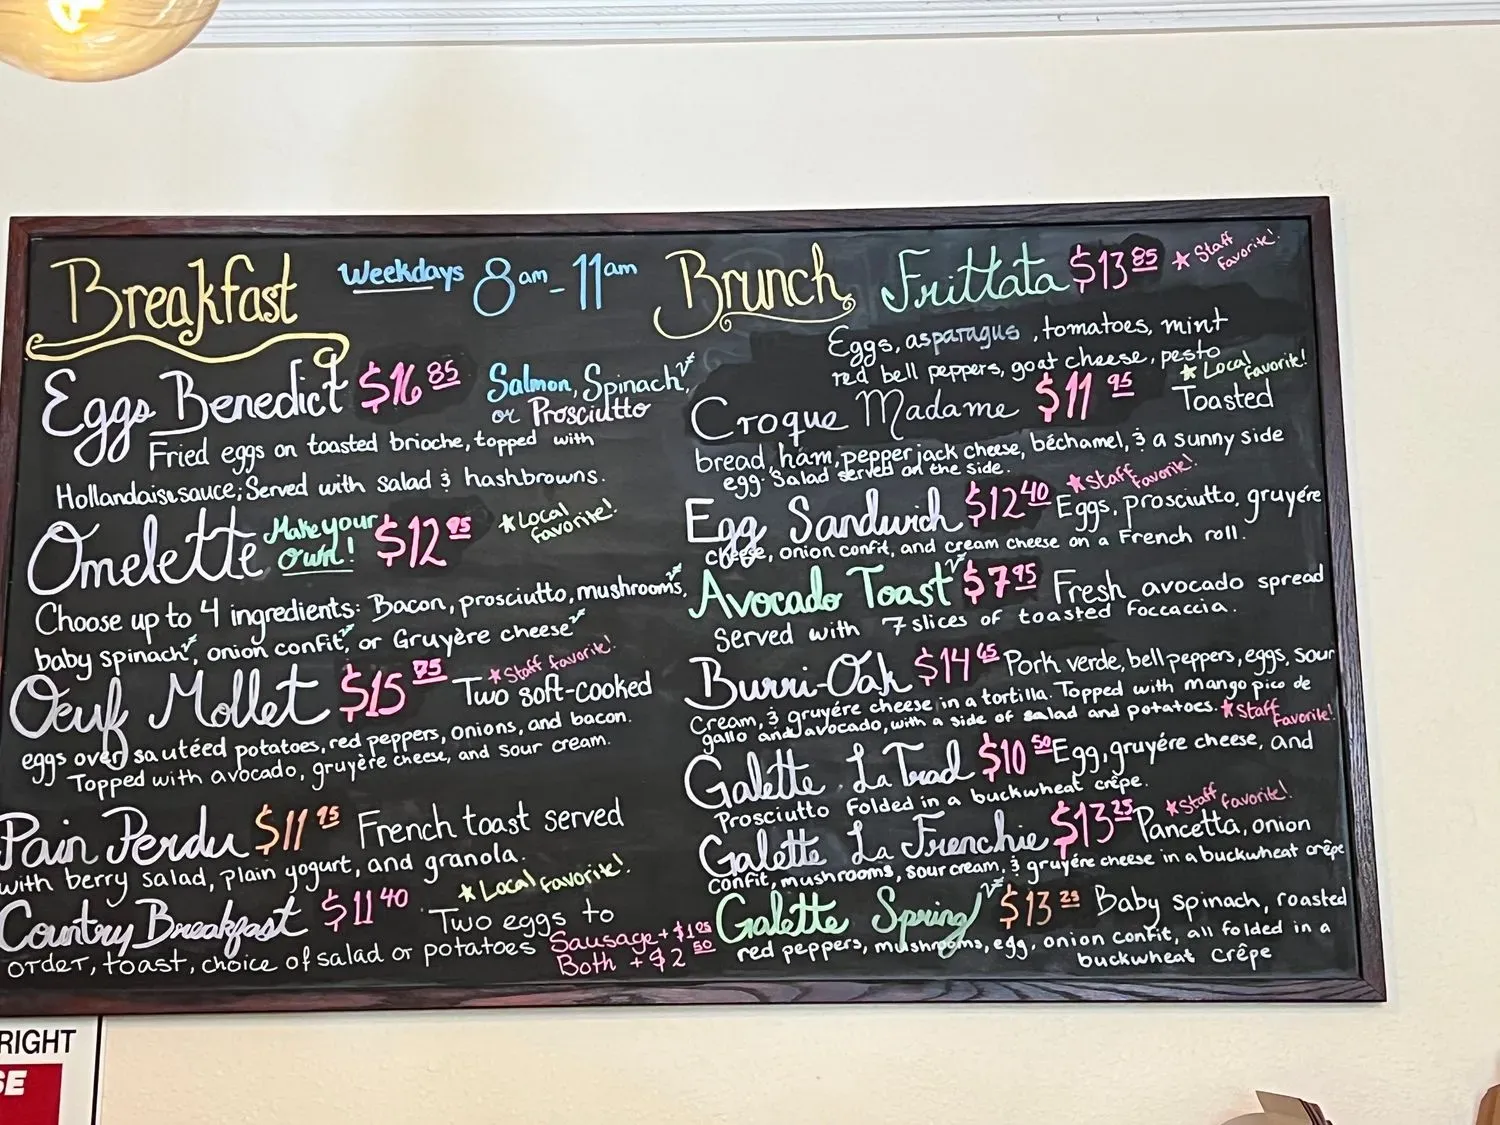 Breakfast Weekdays 8am - 11am
Eggs Benedict $16 85 Salmon, Spinach,
or Prosciutto
Fried eggs on toasted brioche, topped with
Hollandaise sauce; Served with salad & hashbrowns.
Omelette Make your own! $12 95 ★ Local favorite!
Choose up to 4 ingredients: Bacon, prosciutto, mushrooms,
baby spinach, onion confit, or Gruyère cheese
Oeuf Mollet $15 75 ★ Staff favorite!
Two soft-cooked
eggs over sautéed potatoes, red peppers, onions, and bacon.
Topped with avocado, gruyère cheese, and sour cream.
Pain Perdu $11 95 French toast served
with berry salad, plain yogurt, and granola.
Country Breakfast $11 40 ★ Local favorite!
Two eggs to
order, toast, choice of salad or potatoes Sausage + $1 05
Both + $2 50
Brunch Frittata $13 85 ★ Staff favorite!
Eggs, asparagus, tomatoes, mint
red bell peppers, goat cheese, pesto
Croque Madame $11 95 ★ Local favorite!
Toasted
bread, ham, pepperjack cheese, béchamel, & a sunny side
egg. Salad served on the side.
Egg Sandwich $12 40 ★ Staff favorite!
Eggs, prosciutto, gruyére
cheese, onion confit, and cream cheese on a French roll.
Avocado Toast $7 95 Fresh avocado spread
Served with 7 slices of toasted foccaccia.
Burri-Oak $14 65 Pork verde, bell peppers, eggs, sour
cream, & gruyére cheese in a tortilla. Topped with mango pico de
gallo and avocado, with a side of salad and potatoes. ★ Staff favorite!
Galette La Trad $10 50 Egg, gruyére cheese, and
Prosciutto folded in a buckwheat crêpe.
Galette La Frenchie $13 25 ★ Staff favorite!
Pancetta, onion
confit, mushrooms, sour cream, & gruyére cheese in a buckwheat crêpe
Galette Spring $13 25 Baby spinach, roasted
red peppers, mushrooms, egg, onion confit, all folded in a
buckwheat crêpe
RIGHT
SE